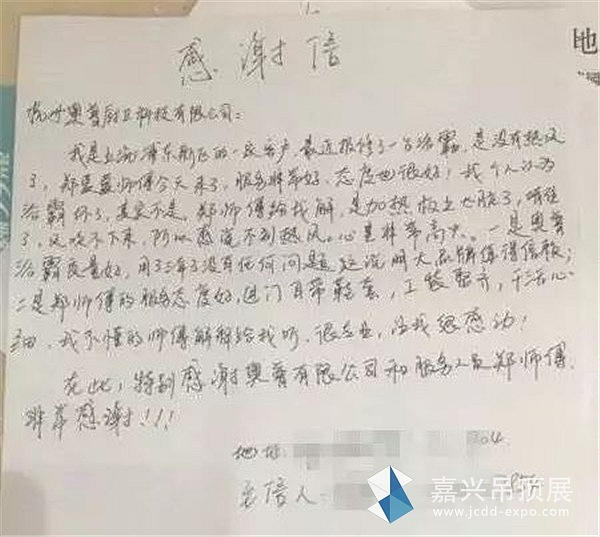 感谢信
杭州奥普厨卫科技有限公司:
我是上海浦东新区的一庭客户,最近报修了一台浴霸,是没有热风
了,郑孟孟师傅今天来了,服务非常好、态度也很好!我个人认为
浴霸坏了,其实不是,郑师傅给我解,是加热 脱了,堵住
了,风吹不下来,所以感觉不到热风。心里非常高兴。一是奥普
浴霸质量好,用了三年了没有任何问题,这说明大品牌值得信赖;
二是郑师傅的服务态度好,进门自带鞋套,工装整齐,干活心
细,我不懂的师傅解释给我听,很专业,让我很感动!
在此,特别感谢奥普有限公司和服务人员郑师傅,
非常感谢!!!
地址: 204
写信人:
地
嘉兴吊顶展
www.jcdd-expo.com